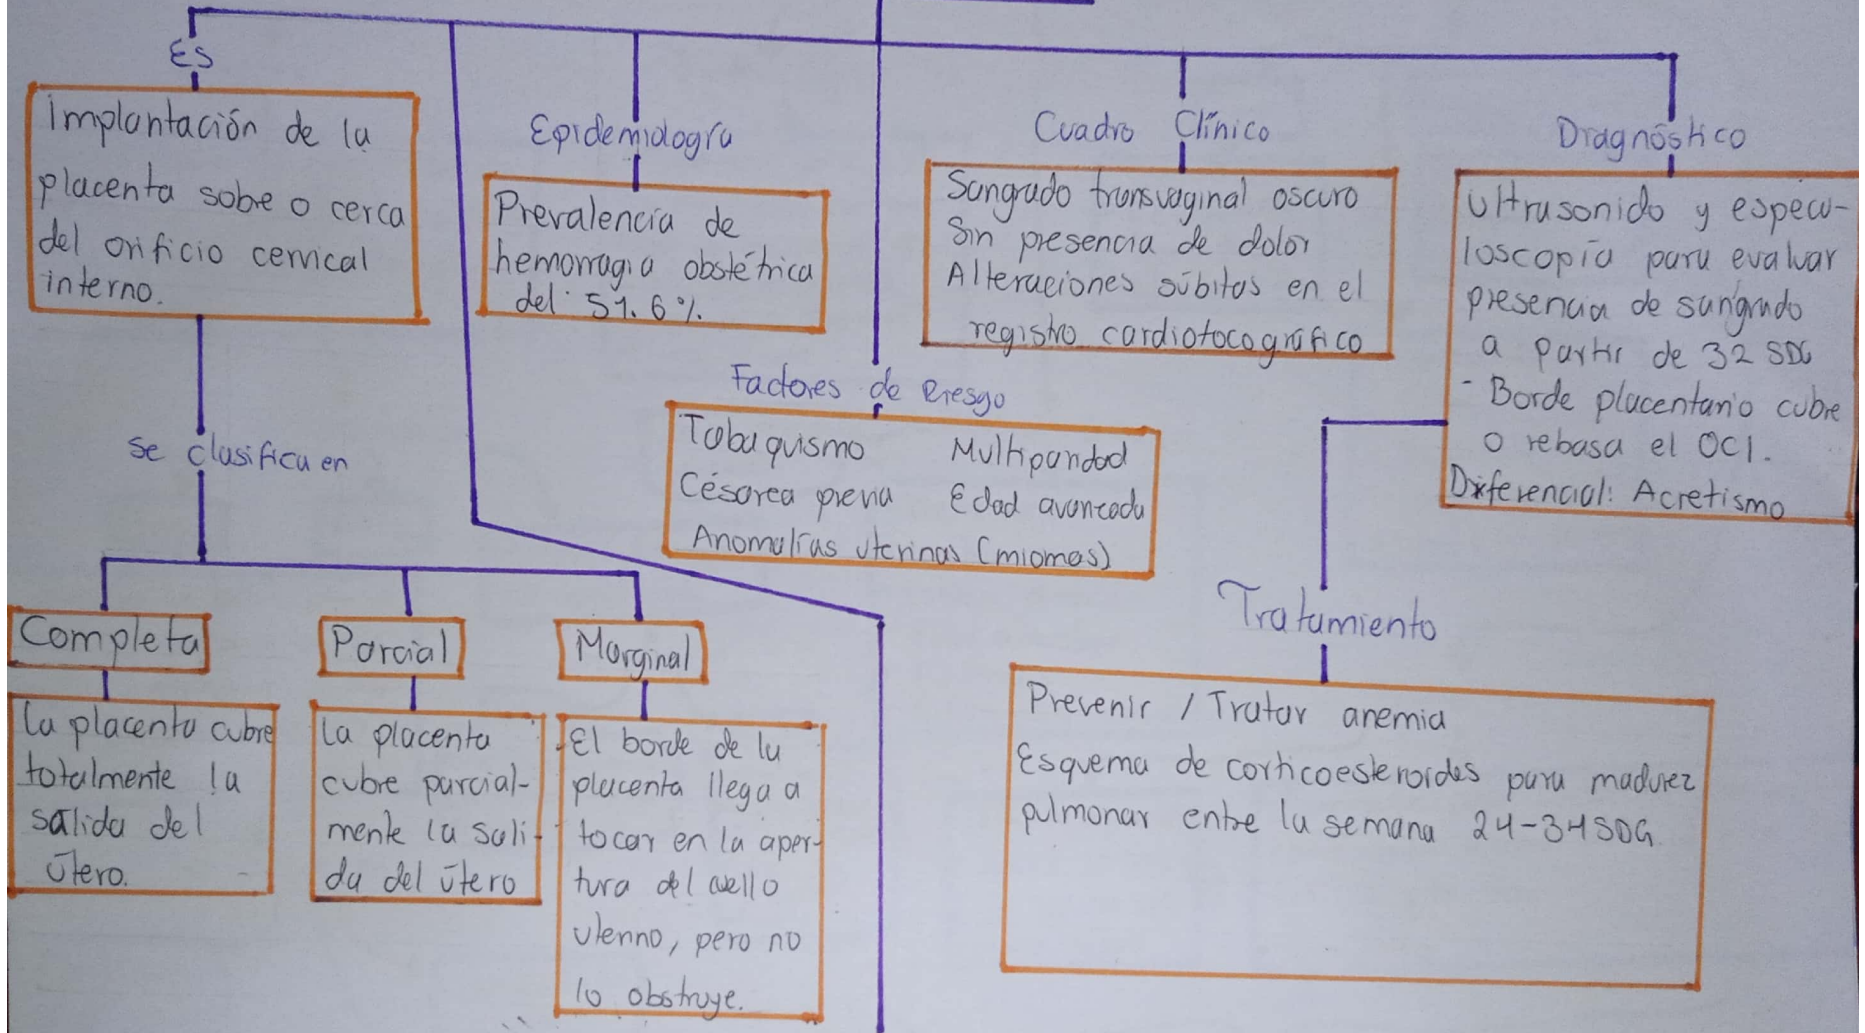 Es
Implantación de la
placenta sobre o cerca
del orificio cervical
interno.
se clasifica en
Completa
La placenta cubre
totalmente la
salida del
útero.
Parcial
La placenta
cubre parcial-
mente la sali-
da del útero
Marginal
El borde de la
placenta llega a
tocar en la aper-
tura del cuello
uterino, pero no
lo obstruye.
Epidemiología
Prevalencia de
hemorragia obstétrica
del 51.6%
Factores de Riesgo
Tabaquismo Multiparidad
Césarea previa Edad avanzada
Anomalías uterinas (miomas)
Cuadro Clínico
Sangrado transvaginal oscuro
Sin presencia de dolor
Alteraciones súbitas en el
registro cardiotocográfico
Diagnóstico
Ultrasonido y especu-
loscopía para evaluar
presencia de sangrado
a partir de 32 SDG
- Borde placentario cubre
o rebasa el OCI.
Diferencial: Acretismo
Tratamiento
Prevenir / Tratar anemia
Esquema de corticoesteroides para madurez
pulmonar entre la semana 24-34 SDG